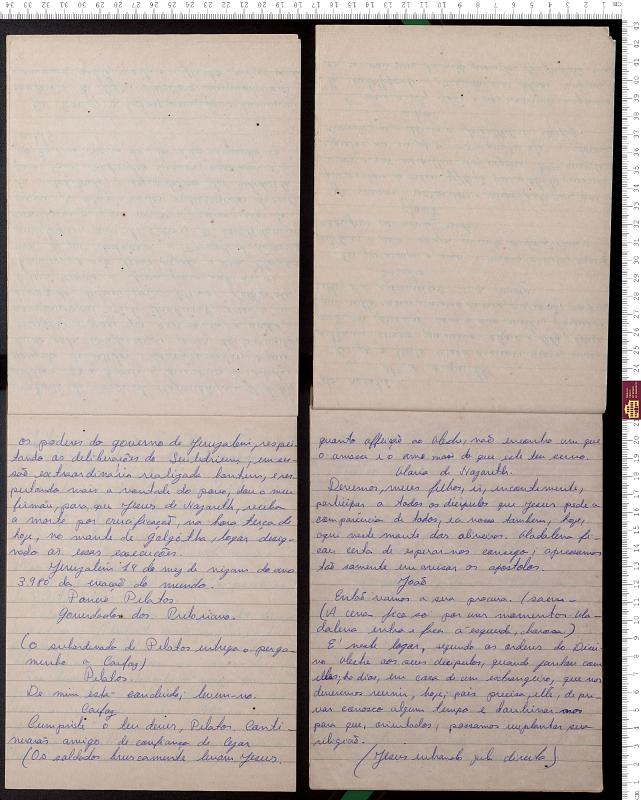 os poderes do governo de Jeruzalem, respei-
tando as deliberações do Senhedrim, em ses-
são extraordinária realizada hontem, e res-
peitando mais a vontade do povo, dou o meu
firmão, para que Jesus de Nazareth, receba
a morte por crucificação, na hora terça de
hoje, no monte de Golgótha logar desig-
nado as essas execuções.
Jeruzalem 14 do mez de nizam do ano
3.980 da creação do mundo.
Poncio Pilatos
Governador dos Pretoriano.
(O subordinado de Pilatos entrega o perga-
minho a Caifaz)
Pilatos.
De mim está concluido; levem-no.
Caifaz
Cumpriste o teu dever, Pilatos. Conti-
nuarás amigo de confiança de Cezar.
(Os soldados bruscamente levam Jesus.
quanto affeição ao Mestre, não encontro um que
o amasse e o ame mais do que este teu servo.
Maria de Nazareth.
Devemos, meus filhos, ir, incontinente,
participar a todos os dicipulos que Jesus pede a
comparencia de todos, e a nossa tambem, hoje,
aqui neste monte das oliveiras. Madalena fi-
cou certa de esperar-nos comsigo; apressemos
tão somente em avisar os apostolos.
João
Então vamos a sua procura. (saem-
(A cena fica só por uns momentos. Ma-
dalena entra e fica a esquerda, chorosa.)
É neste logar, segundo as ordens do Divi-
no Mestre aos seus dicipulos, quando jantou com
elles, ha dias, em casa de um extrangeiro, que nos
devemos reunir, hoje; pois precisa, elle, de pri-
var conosco algum tempo e doutrinar-nos
para que, orientados, possamos implantar sua
religião.
(Jesus entrando pela direita)